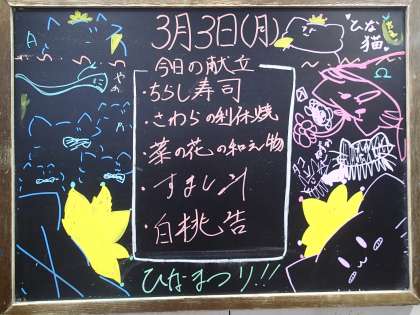 3月3日(月)
ひな
猫
今日の献立
・ちらし寿司
・さわらの利休焼
・菜の花の和え物
・すまし汁
・白桃告
ひなまつり!!